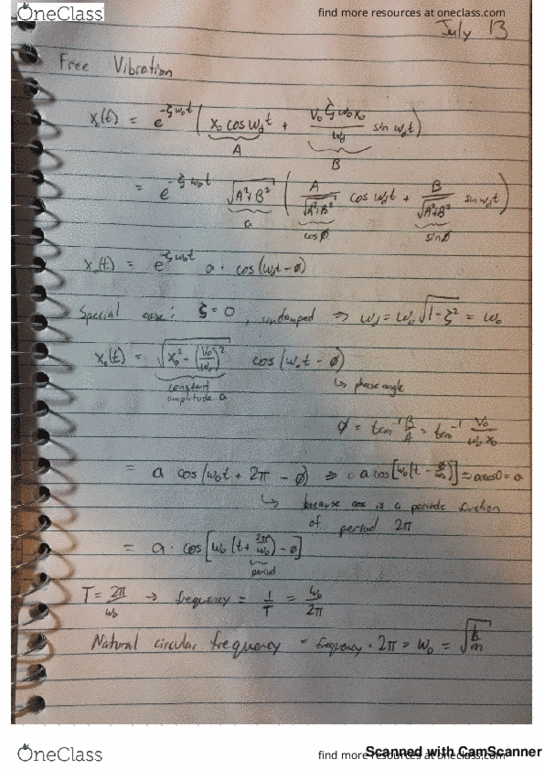 OneClass
find more resources at oneclass.com
July 13
Free Vibration
x_c(t) = e^{-ξω₀t} ( x₀ cos ω_d t + (V₀ ξ ω₀ x₀)/ω_d sin ω_d t )
A B
= e^{-ξω₀t} √(A²+B²) ( A/√(A²+B²) cos ω_d t + B/√(A²+B²) sin ω_d t )
a cosø sinø
x_c(t) = e^{-ξω₀t} a · cos(ω_d t - ø)
Special case: ξ = 0, undamped ⇒ ω_d = ω₀ √(1-ξ²) = ω₀
x_c(t) = √(x₀² - (V₀/ω₀)²) cos(ω₀t - ø)
constant amplitude a
↳ phase angle
ø = tan⁻¹ B/A = tan⁻¹ V₀/(ω₀x₀)
= a cos(ω₀t + 2π - ø) ⇒ a cos[ω₀(t - ø/ω₀)] ⇒ a cos0 = a
↳ because cos is a periodic function
of period 2π
= a · cos[ω₀(t + 2π/ω₀) - ø]
period
T = 2π/ω₀ → frequency = 1/T = ω₀/2π
Natural circular frequency = frequency · 2π = ω₀ = √(k/m)
OneClass
find more resources at oneclass.com
Scanned with CamScanner